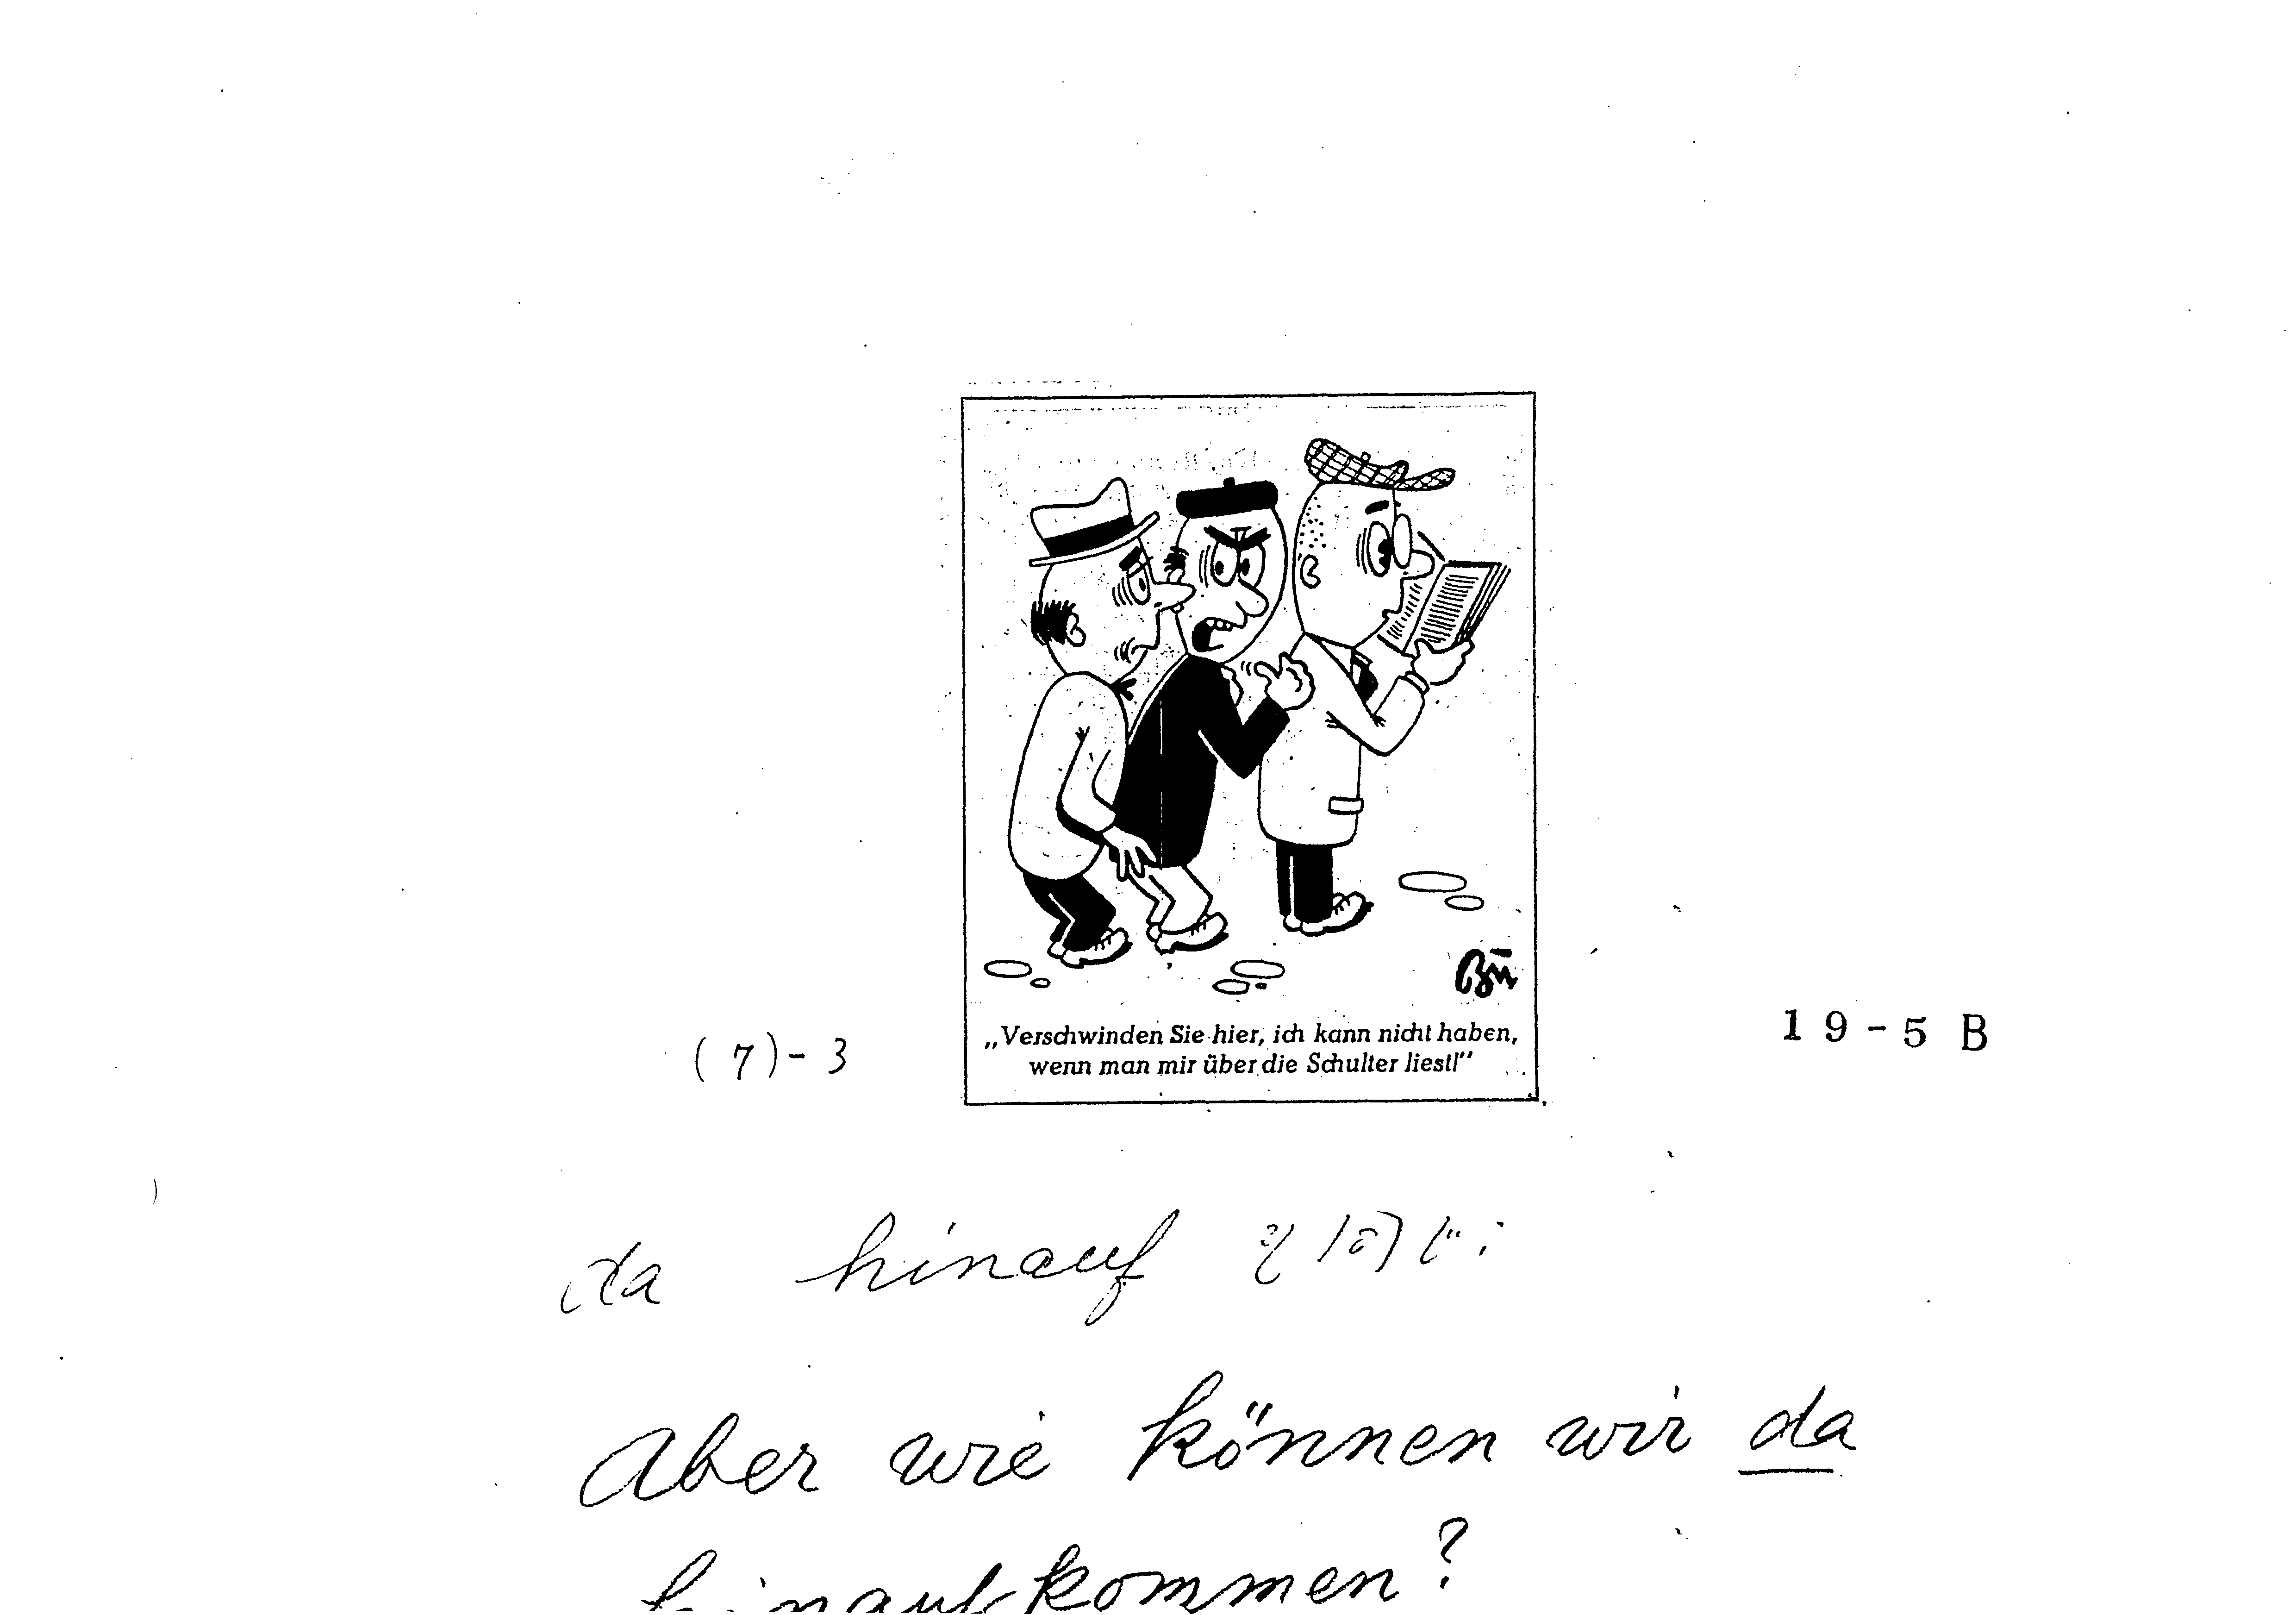 Bü
„Verschwinden Sie hier, ich kann nicht haben,
wenn man mir über die Schulter liest!"
(7)-3
19-5 B
da hinauf
Aber wie können wir da
hinaufkommen?